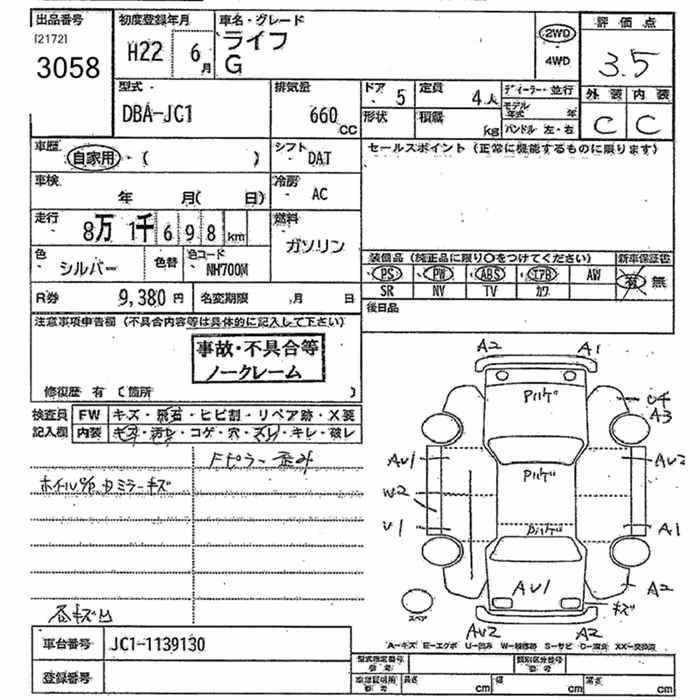 出品番号 初度登録年月 車名・グレード 評価点
[2172]
3058
H22 6月
ライフ
G
2WD
4WD
3.5
型式 排気量 ドア 定員 ディーラー・並行 外装 内装
DBA-JC1 660cc 5 4人
形状 積載 kg モデル年式 年
ハンドル 左・右
C C
車歴 自家用・( ) シフト DAT セールスポイント (正常に機能するものに限ります)
車検 年 月( 日) 冷房 AC
走行 8万1千698km 燃料 ガソリン
色 シルバー 色替 色コード NH700M
装備品 (純正品に限り○をつけてください) 新車保証書
PS PW ABS エアB AW 有 無
SR NV TV カワ
R券 9,380円 名変期限 月 日
後日品
注意事項申告欄 (不具合内容等は具体的に記入して下さい)
事故・不具合等
ノークレーム
修復歴 有 (箇所 )
検査員 FW キズ・飛石・ヒビ割・リペア跡・X要
記入欄 内装 キズ・汚れ・コゲ・穴・スレ・キレ・破れ
Fピラー歪み
ミラーキズ
A2 A1
U4
A3
AU1 AU2
W2
U1 A1
AU1 A2
キズ
スペア
AU2 A2
A-キズ E-エクボ U-凹み W-補修跡 S-サビ C-腐食 XX-交換済
車台番号 JC1-1139130
登録番号
型式指定番号 類別区分番号
長さ cm 幅 cm 高さ cm